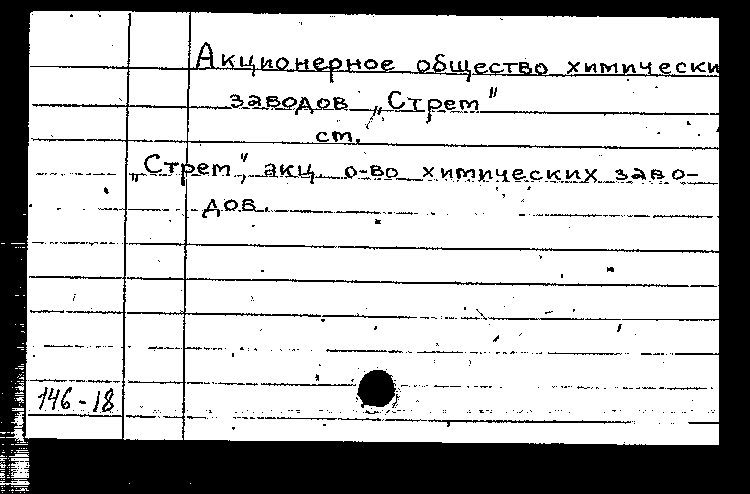 Акционерное общество химически
заводов „Стрем"
ст.
„Стрем", акц. о-во химических заво-
дов.
146-18